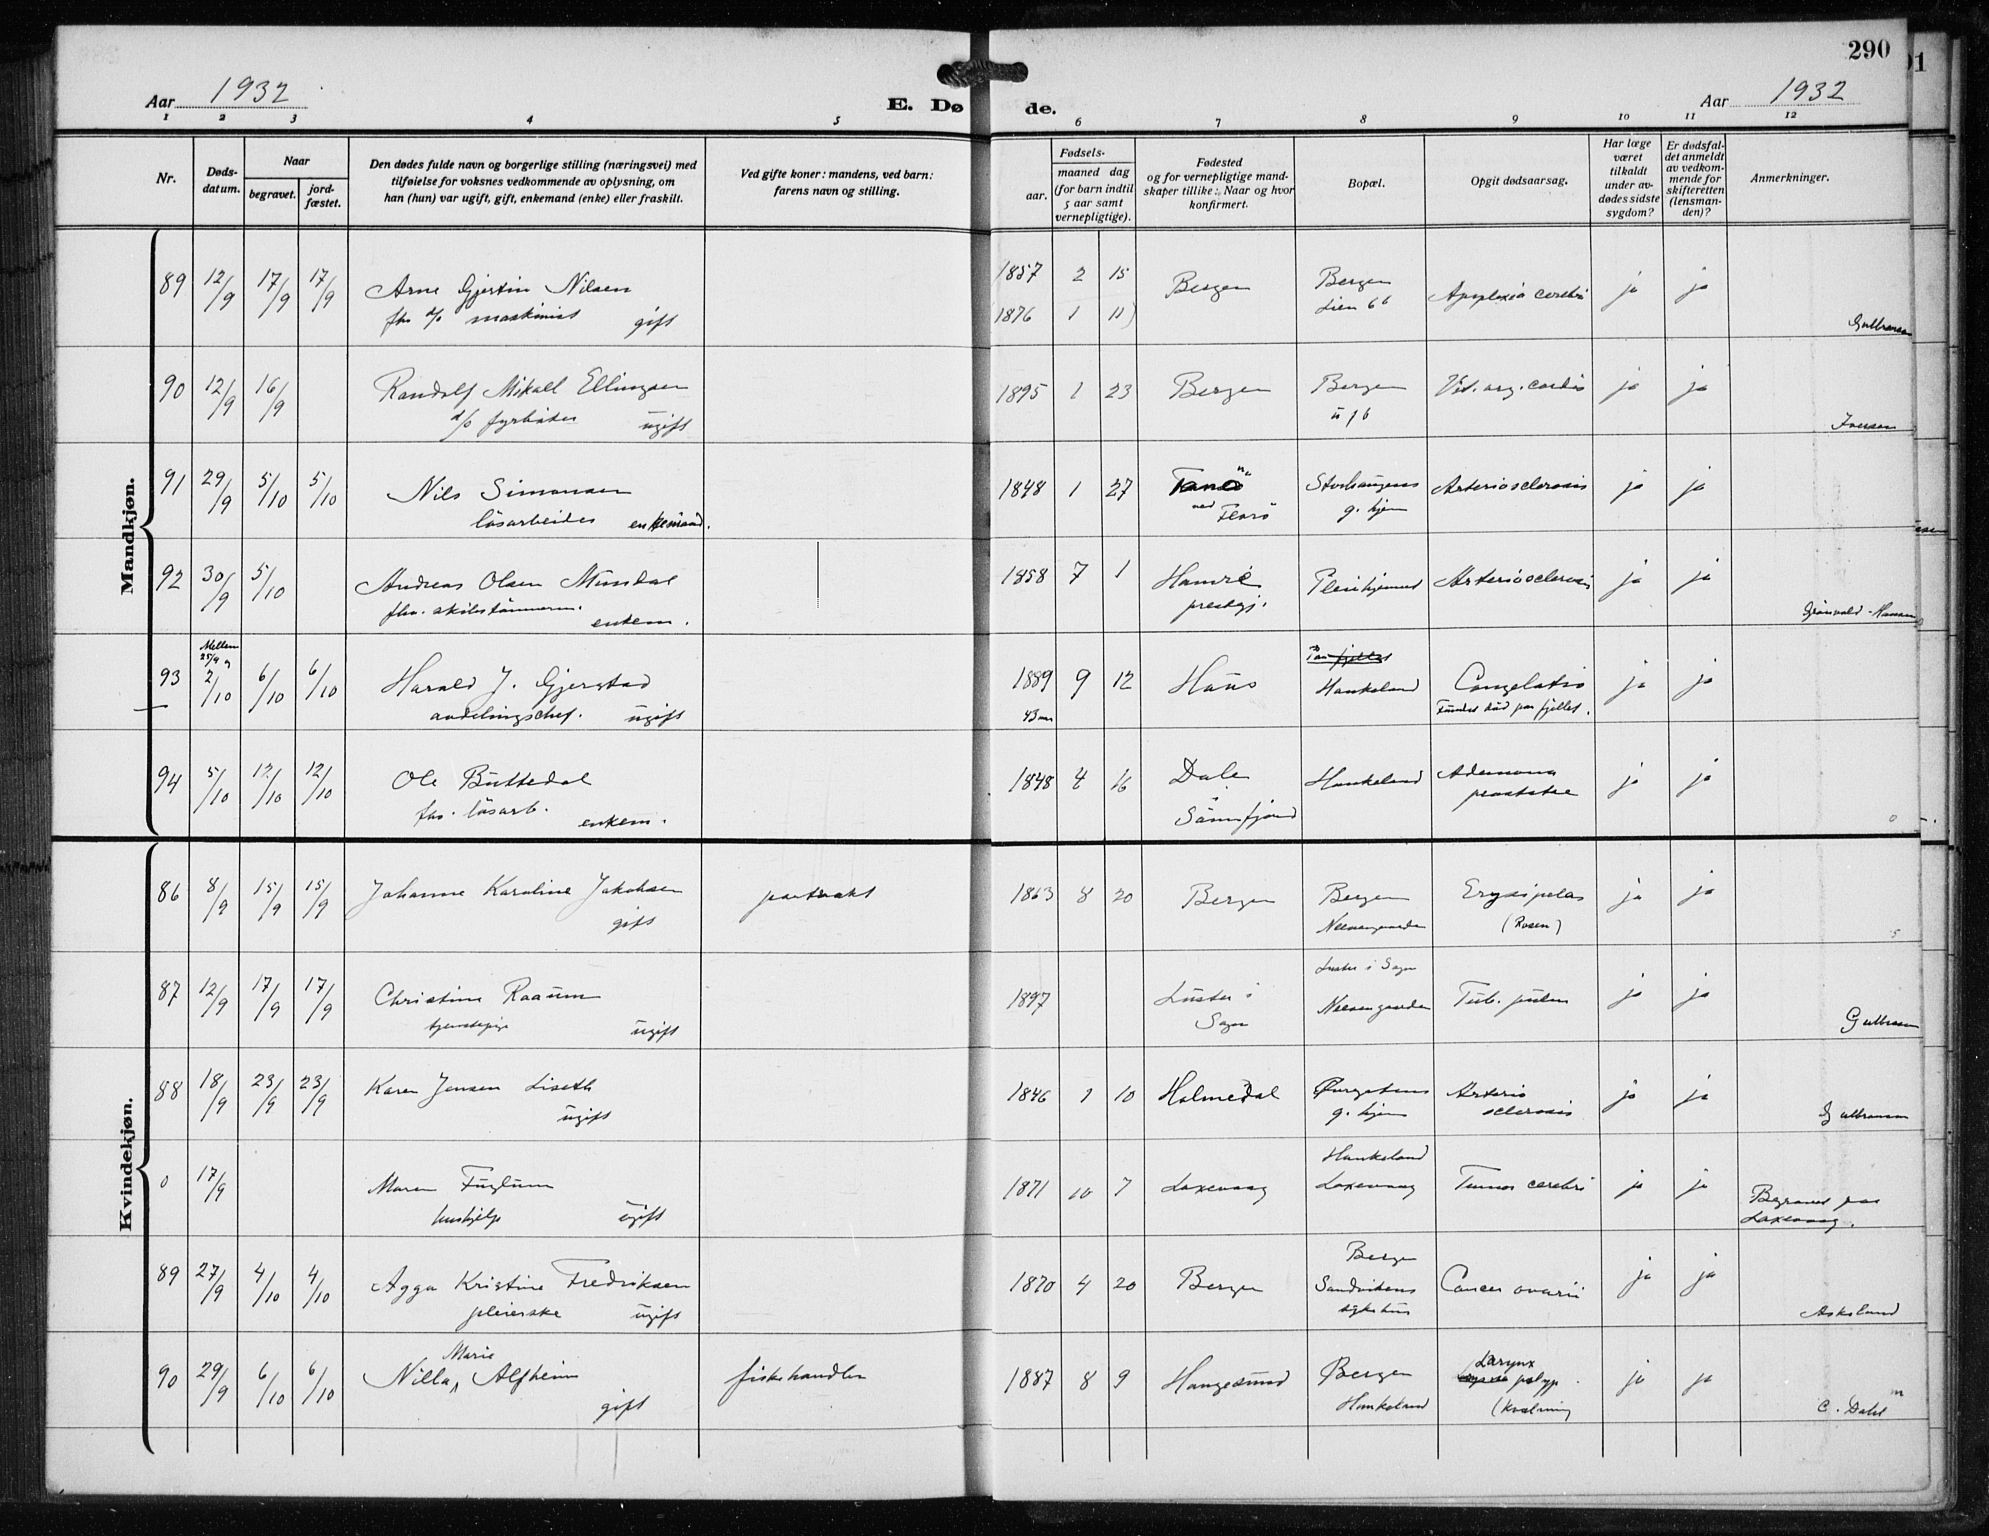 290
Aar 1932
E. Dø de.
Aar 1932
1 2 3 4 5 6 7 8 9 10 11 12
Nr.
Døds-
datum.
Naar
begravet.
jord-
fæstet.
Den dødes fulde navn og borgerlige stilling (næringsvei) med
tilføielse for voksnes vedkommende av oplysning, om
han (hun) var ugift, gift, enkemand (enke) eller fraskilt.
Ved gifte koner: mandens, ved barn:
farens navn og stilling.
Fødsels-
aar.
maaned dag
(for barn indtil
5 aar samt
vernepligtige).
Fødested
og for vernepligtige mand-
skaper tillike: Naar og hvor
konfirmert.
Bopæl.
Opgit dødsaarsag.
Har læge
været
tilkaldt
under av-
dødes sidste
sygdom?
Er dødsfal-
det anmeldt
av vedkom-
mende for
skifteretten
(lensman-
den)?
Anmerkninger.
Mandkjøn.
89 12/9 17/9 17/9 Arne Gjertin Nilsen 1857 2 15 Bergen Bergen Apoplexia cerebri ja ja
fhv. maskinist gift 1876 1 11) Lien 66 Gulbransen
90 12/9 16/9 Randolf Mikall Ellingsen 1895 1 23 Bergen Bergen Vit. org. cordis ja ja
d/s fyrbøter ugift Iversen
91 29/9 5/10 5/10 Nils Simonsen 1848 1 27 ved Florö Storhaugens g. hjem Arteriosclerosis ja ja
løsarbeider enkemand.
92 30/9 5/10 Andreas Olsen Mundal 1858 7 1 Hamre Pleiehjemmet Arteriosclerosis ja ja
fhv. skibstømmerm. enkem. prestgj. Grönvold-Hansen
93 Mellem 25/9 og 2/10 6/10 6/10 Harald J. Gjerstad 1889 9 12 Haus Haukeland Congelatio ja ja
avdelingschef. ugift 43 aar Fundet död paa fjellet.
94 5/10 12/10 12/10 Ole Buttedal 1848 4 16 Dale Haukeland Adenoma ja ja
fhv. løsarb. enkem. i Sönnfjord prostatae
Kvindekjøn.
86 8/9 15/9 15/9 Johanne Karoline Jakobsen 1863 8 20 Bergen Bergen Erysipelas ja ja
gift Neevengaarden (Rosen)
87 12/9 17/9 17/9 Christine Raaum 1897 Luster i Sogn Luster i Sogn Neevengaarden Tub. pulm ja ja
tjenestepige ugift Gulbransen
88 18/9 23/9 23/9 Karen Jensen Liseth 1846 1 10 Holmedal g. hjem Arteriosclerosis ja ja
ugift Gulbransen
0 17/9 Maren Fuglum 1871 10 7 Laxevaag Haukeland Laxevaag Tumor cerebri ja ja
hushjelp ugift Begravet paa Laxevaag.
89 27/9 4/10 4/10 Agga Kristine Fredriksen 1870 4 20 Bergen Bergen Cancer ovarii ja ja
pleierske ugift Sandvikens sykehus Askeland
90 29/9 6/10 6/10 Nilla Marie Alfheim fiskehandler 1887 8 9 Haugesund Bergen Larynx polyp ja ja
gift Haukeland (Kvælning C. Dahl